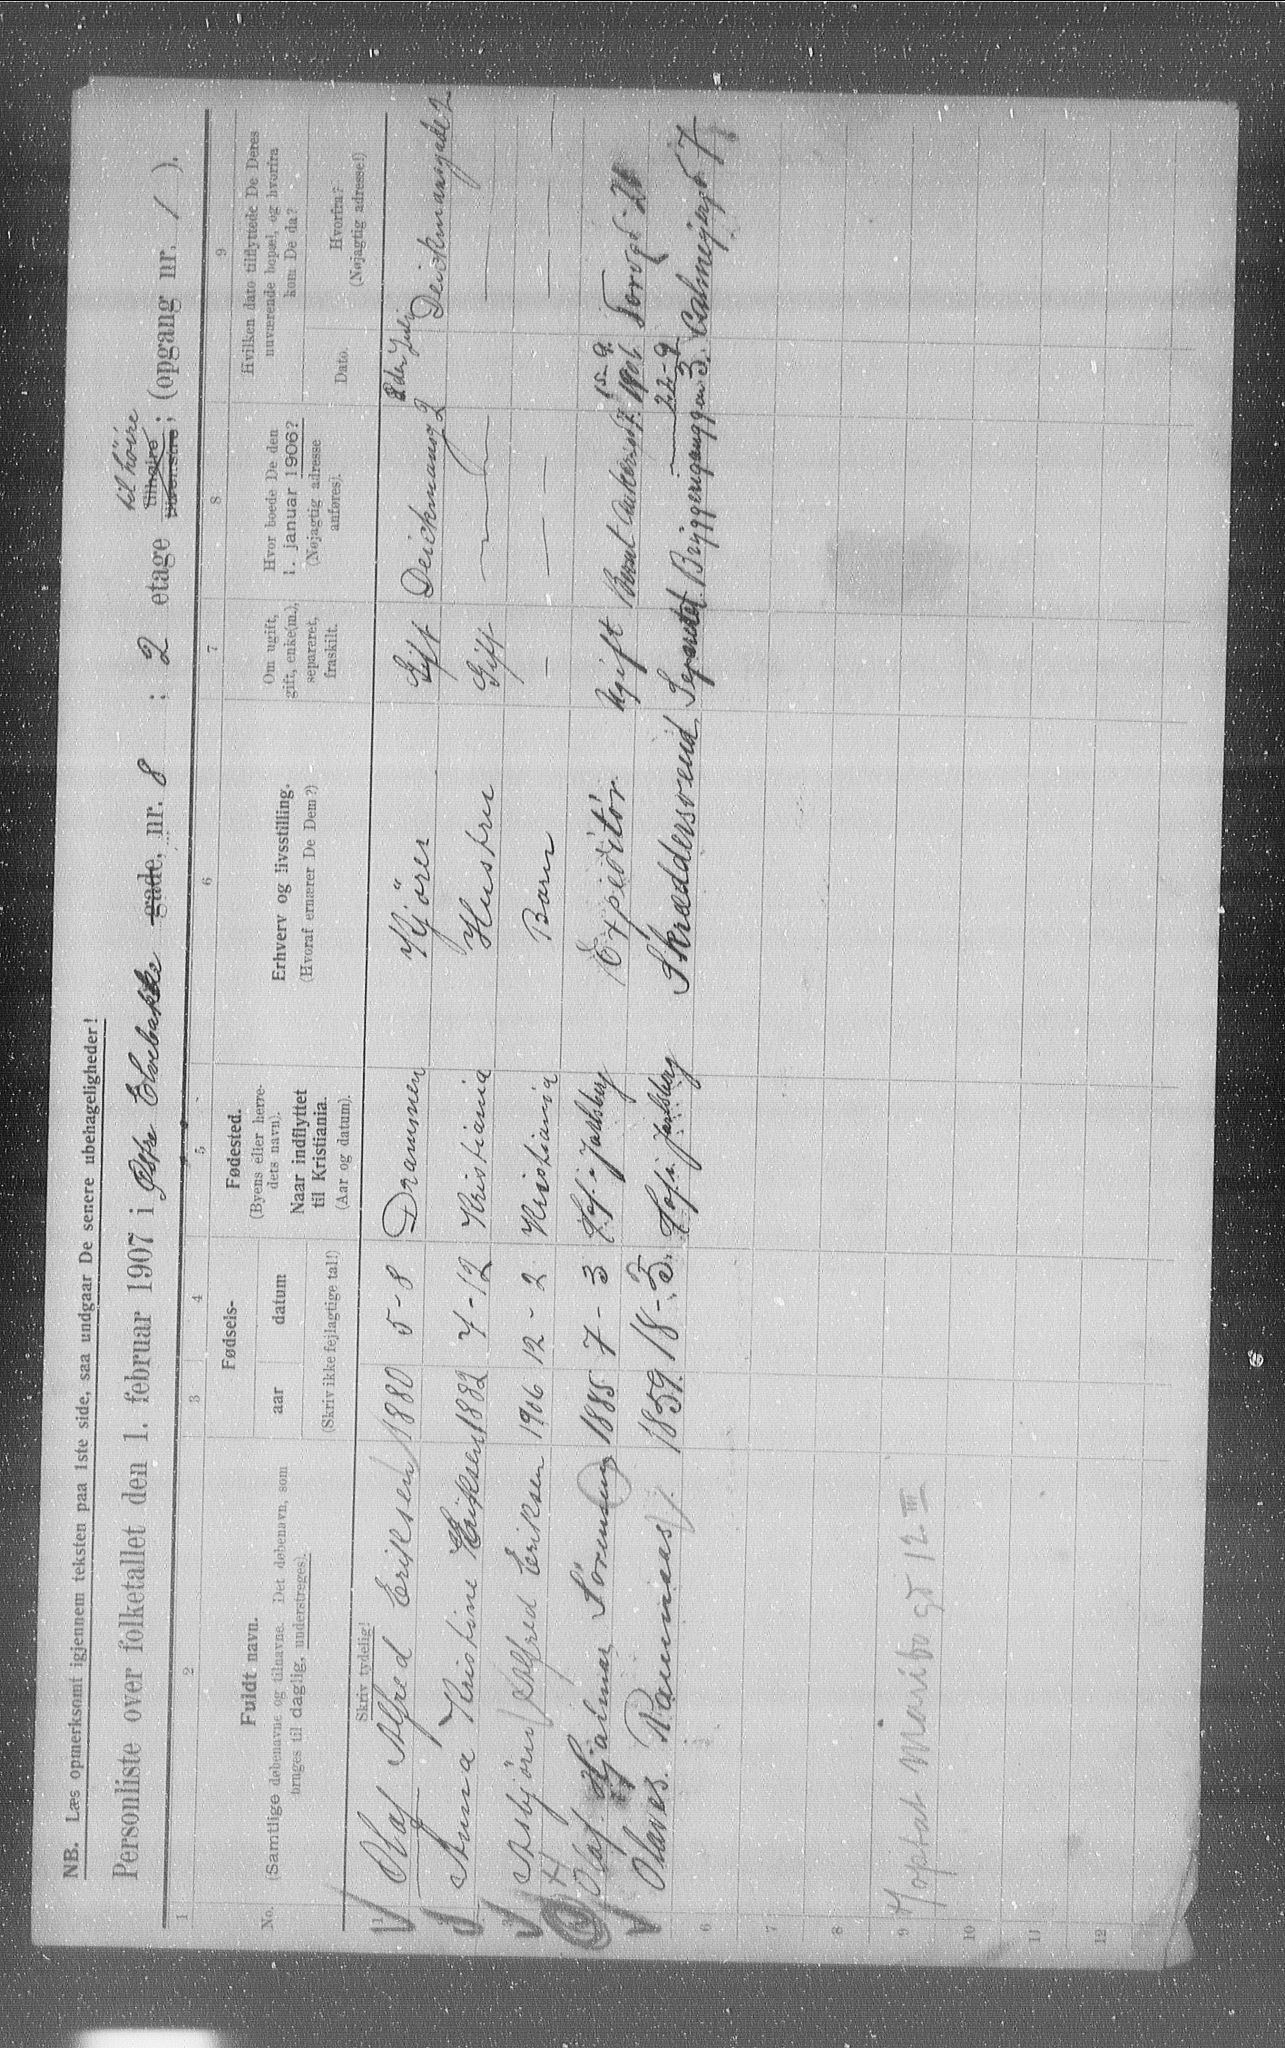 NB. Læs opmerksomt igjennem teksten paa 1ste side, saa undgaar De senere ubehageligheder!
Personliste over folketallet den 1. februar 1907 i Østre Elvebakke gade, nr. 8 : 2 etage til høire tilhøire tilvenstre; (opgang nr. 1 ).
1 2 3 4 5 6 7 8 9
No.
Fuldt navn.
(Samtlige døbenavne og tilnavne. Det døbenavn, som
bruges til daglig, understreges).
Skriv tydelig!
Fødsels-
aar datum
(Skriv ikke fejlagtige tal!)
Fødested.
(Byens eller herre-
dets navn).
Naar indflyttet
til Kristiania.
(Aar og datum).
Erhverv og livsstilling.
(Hvoraf ernærer De Dem?)
Om ugift,
gift, enke(m.),
separeret,
fraskilt.
Hvor boede De den
1. januar 1906?
(Nøjagtig adresse
anføres).
Hvilken dato tilflyttede De Deres
nuværende bopæl, og hvorfra
kom De da?
Dato.
Hvorfra?
(Nøjagtig adresse!)
1 Olaf Alfred Eriksen 1880 5-8 Drammen Kjörer Gift Deickmansg 2 Juli Deickmansgade 2
Anna Kristine Eriksen 1882 7-12 Kristiania Hustru Gift — —
Asbjörn Alfred Eriksen 1906 12-2 Kristiania Barn — — —
Olaf Hjalmar Sörensen 1885 7-3 Hof i Jarlsberg Expeditör Ugift 15-9 1906 Torvgd 26
Olaves Ramnaas 1859 18-5. Hof i Jarlsberg Skræddersvend Separeret Bryggerigangen 3. 22-9 Calmeyrgd 7
6
7
8
9
10
11
12
Hoptat Maribogd 12 III